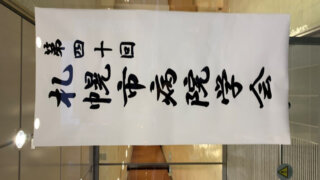 第四十回
札幌市病院学会